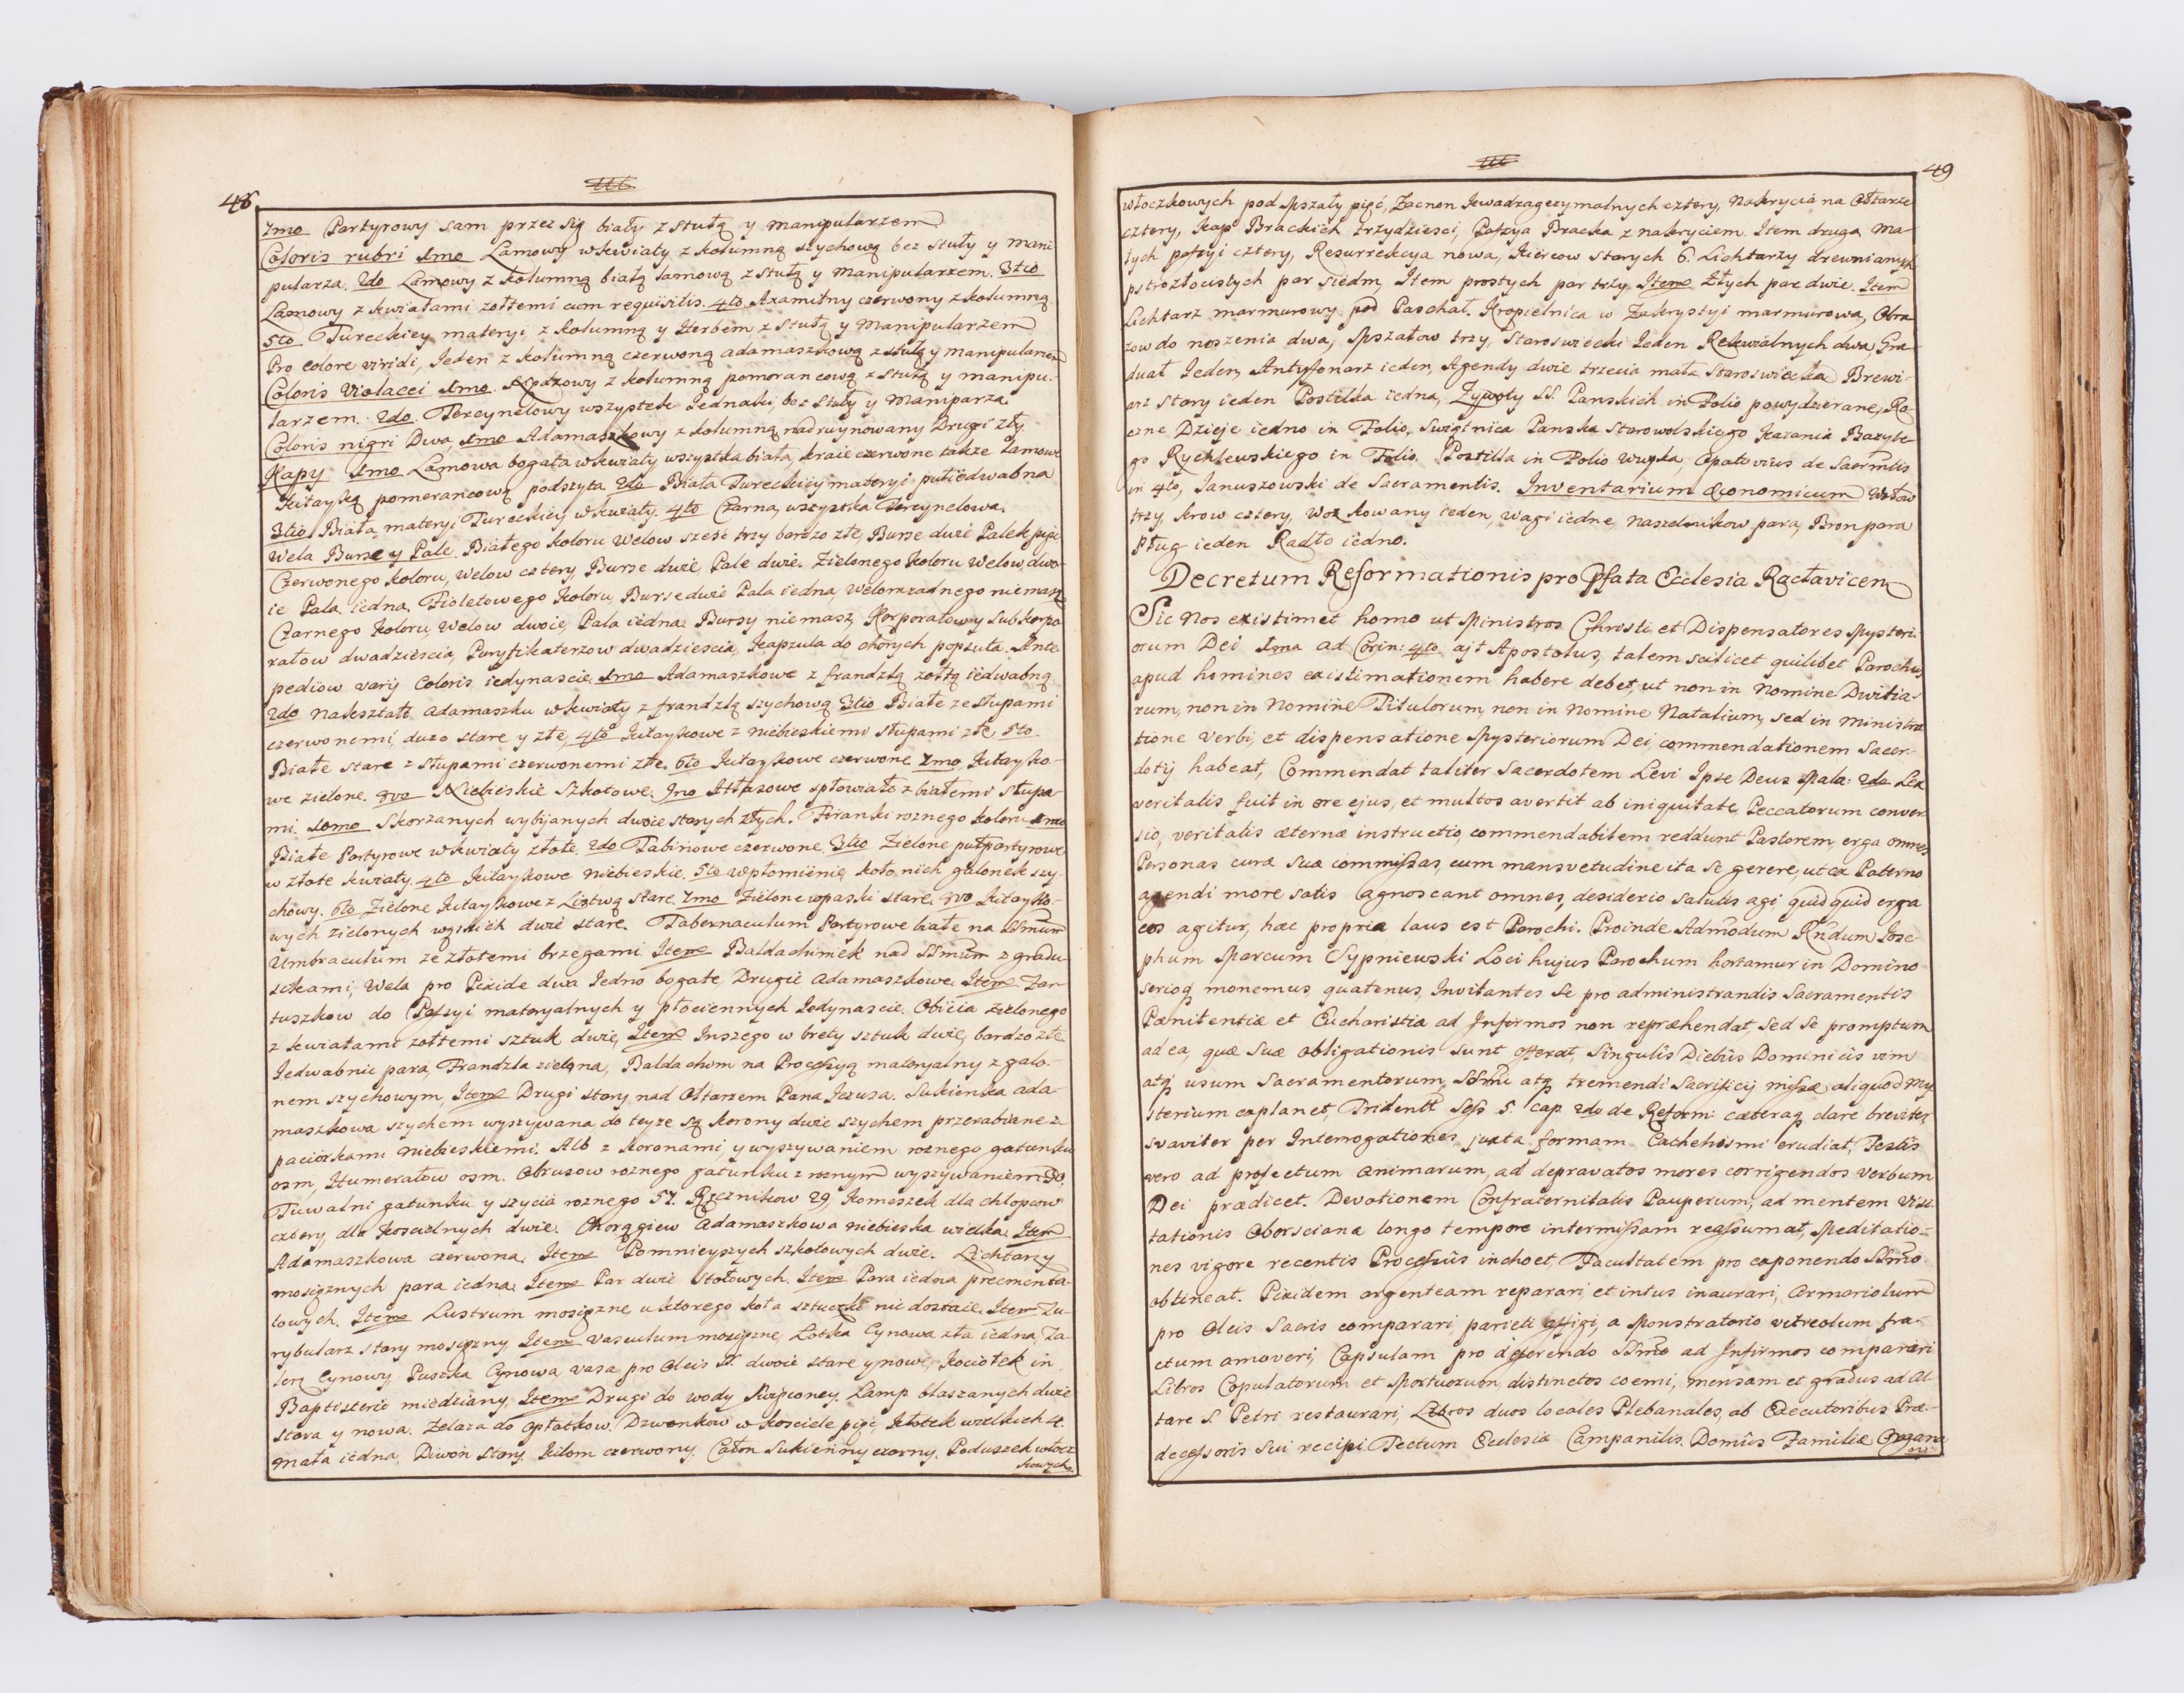 48
7mo Partyrowy sam przez się biały z stułą y manipularzem
Coloris rubri 1mo Lamowy w kwiaty z kolumną szychową bez stuły y mani
pularza. 2do Lamowy z kolumną białą lamową z stułą y manipularzem. 3tio
Lamowy z kwiatami zołtemi cum requisitis. 4to Axamitny czerwony z kolumną
5to Tureckiey materyi z kolumną y Herbem z stułą y Manipularzem
Pro colore viridi, Jeden z kolumną czerwoną adamaszkową z stułą y manipularzem
Coloris Violacei 1mo. z kolumną pomorancową z stułą y manipu-
larzem. 2do. Tercynelowy wszystek Jednaki, bez Stuły y Maniparza
Coloris nigri Dwa, 1mo Adamaszkowy z kolumną nadruynowany Drugi zły.
Kapy 1mo Lamowa bogata w kwiaty wszystka biała, kraie czerwone także lamowe
Kitayką pomorancową podszyta 2do Biała Tureckiey materyi pułiedwabna
3tio Biała, materyi Tureckiey w kwiaty. 4to Czarna, wszystka Tercynelowa.
Wela Burse y Pale. Białego koloru Welow sześc trzy bardzo złe, Burse dwie Palek pięc
Czerwonego koloru, Welow cztery, Burse dwie, Pale dwie. Zielonego Koloru Welow dwo-
ie Pala iedna. Fioletowego Koloru, Burse dwie Pala iedna, Welom zadnego niemasz
Czarnego Koloru, Welow dwoie, Pala iedna, Bursy niemasz, Korporałowy Subkorpo
rałow dwadziescia, Puryfikaterzow dwadziescia, Kapzula do chorych popsuta. Ante
pediow varij Coloris iedynascie. 1mo Adamaszkowe z frandzlą zołtą iedwabną
2do Nakształt adamaszku w kwiaty z frandzlą szychową 3tio Białe ze słupami
czerwonemi, duzo stare y złe, 4to Kitaykowe z niebieskiemi słupami złe, 5to
Białe stare z słupami czerwonemi złe. 6to Kitaykowe czerwone 7mo, Kitayko-
we zielone. 8vo Niebieskie Szkotowe. 9no Attłasowe spłowiałe z białemi słupa-
mi. 10mo Skorzanych wybijanych dwoie starych złych. Firanki roznego koloru 1mo
Białe Partyrowe w kwiaty złote. 2do Tabinowe czerwone. 3tio Zielone pułpartyrowe
w złote kwiaty. 4to Kitaykowe niebieskie. 5to w płomienie, koło nich galonek szy-
chowy. 6to Zielone Kitaykowe z Listwą stare. 7mo Zielone w paski stare. 8vo Kitayko-
wych zielonych wąskich dwie stare. Tabernaculum Partyrowe białe na SSmum
Umbraculum ze złotemi brzegami. Item Baldachimek nad SSmum z gradu-
sikami, Wela pro Pixide dwa Jedno bogate Drugie adamaszkowe. Item Far-
tuszkow do Passyi materyalnych y płociennych Jedynascie. Obicia zielonego
z kwiatami zołtemi sztuk dwie, Item Inszego w brety sztuk dwie, bardzo złe
Jedwabnic para, Frandzla zielona, Baldachim na Processyą materyalny z galo-
nem szychowym, Item Drugi stary nad Ołtarzem Pana Jezusa. Sukienka ada-
maszkowa szychem wyszywana do teyze są korony dwie szychem przerabiane z
paciorkami niebieskiemi. Alb z koronami, y wyszywaniem roznego gatunku
osm, Humerałow osm. Obrusow roznego gatunku z roznym wyszywaniem
Tuwalni gatunku y szycia roznego 57. Ręcznikow 29, Komeszek dla chłopcow
cztery, dla koscielnych dwie. Chorągiew Adamaszkowa niebieska wielka. Item
Adamaszkowa czerwona. Item Pomnieyszych szkotowych dwie. Lichtarzy
mosięznych para iedna. Item Par dwie stołowych. Item Para iedna precmenta-
lowych. Item Lustrum mosięzne u ktorego koła sztuczki nie dostaie. Item Tu-
rybularz stary mosięzny, Item Vasculum mosięzne, Łotka Cynowa zła iedna, Ta-
lerz Cynowy, Puszka Cynowa, vasa pro Oleis SS. dwoie stare y nowe, Kociołek in
Baptisterio miedziany, Item Drugi do wody Swięconey. Lamp blaszanych dwie
stara y nowa. Zelaza do opłatkow. Dzwonkow w kosciele pięc. Kłotek wielkich 4.
mała iedna. Diwon stary. Kilom czerwony. Całon Sukienny czarny. Poduszek włocz
kowych
49
włoczkowych pod Mszały pięc, Zacnon kwadragezymalnych cztery, Nakrycia na Ołtarze
cztery, Kap Brackich trzydziesci, Passya Bracka z nakryciem. Item druga Ma-
łych passyi cztery, Resurrekcya nowa, Kiercow starych 6. Lichtarzy drewnianych
pstrozłocistych par siedm, Item prostych par trzy. Item Złych par dwie. Item
Lichtarz marmurowy pod Paschał. Kropielnica w Zakrystyi marmurowa, Obra
zow do noszenia dwa, Mszałow trzy, staroswiecki Jeden Rekwialnych dwa, Gra-
duał Jeden, Antyfonarz ieden, Agendy dwie trzecia mała staroswiecka. Brewi-
arz stary ieden Postilla iedna, Zywoty SS. Panskich in Folio powydzierane, Ro-
czne Dzieje iedno in Folio. Swiątnica Panska Starowolskiego Kazania Bazyle-
go Rychlewskiego in Folio. Postilla in Folio Wuyka, Opatovius de Sacrmtis
in 4to, Januszowski de Sacramentis. Inventarium Œconomicum
trzy, krow cztery, Woz kowany ieden, wagi iedne, Naszelnikow para, Bron para
Pług ieden Radło iedno.
Decretum Reformationis pro Pfata Ecclesia Racłavicen
Sic nos existimet homo ut Ministros Christi et Dispensatores Mysteri-
orum Dei 1ma ad Corin: 4to ajt Apostolus, talem scilicet quilibet Parochus
apud homines existimationem habere debet, ut non in Nomine Divitia-
rum, non in Nomine Titulorum, non in Nomine Natalium, sed in ministra
tione verbi, et dispensatione Mysteriorum Dei, commendationem Sacer-
dotij habeat, Commendat taliter Sacerdotem Levi Ipse Deus Mala: 2do Lex
veritatis fuit in ore ejus, et multos avertit ab iniquitate Peccatorum conver-
sio, veritatis æternæ instructio, commendabilem reddunt Pastorem, erga omnes
Personas curæ suæ commissas, cum mansvetudine ita se gerere, ut ex Paterno
agendi more satis agnoscant omnes, desiderio Salutis agi, quidquid erga
eos agitur, hæc propria laus est Parochi. Proinde Admodum Rndum Jose-
phum Marcum Sypniewski Loci hujus Parochum hortamur in Domino
serioq monemus quatenus, Invitantes Se pro administrandis Sacramentis
Pœnitentiæ et Eucharistiæ ad Infirmos non repræhendat, sed se promptum
ad ea, quæ suæ obligationis sunt offerat, Singulis Diebus Dominicis vim
atq usum Sacramentorum, SSmi atq tremendi Sacrificij missæ aliquod my
sterium explanet, Tridentt Sess 5. cap 2do de Reform: cæteraq clare breviter
svaviter per Interrogationes juxta formam Cachehismi erudiat, Festis
vero ad profectum animarum, ad depravatos mores corrigendos verbum
Dei prædicet. Devotionem Confraternitatis Pauperum, ad mentem Visi-
tationis Oborsciana longo tempore intermissam reassumat, Meditatio-
nes vigore recentis Processus inchoet, Facultatem pro exponendo SSmo
obtineat. Pixidem argenteam reparari et intus inaurari, armariolum
pro Oleis Sacris comparari parieti affigi, a Monstratorio vitreolum fra-
ctum amoveri, Capsulam pro deferendo SSmo ad Infirmos comparari
Libros Copulatorum et Mortuorum distinctos coemi, mensam et gradus ad Al-
tare S. Petri restaurari, Libros duos locales Plebanales, ab Executoribus Præ-
decessoris sui recipi. Tectum Ecclesiæ Campanilis, Domus Familiæ Organa